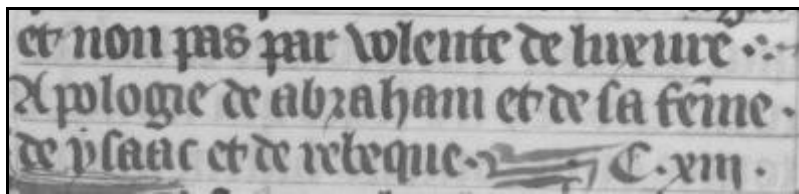 et non pas par volente de luxure ·:·
Apologie de abraham et de sa fem̄e ·
de ysaac et de rebeque · C · xiii ·